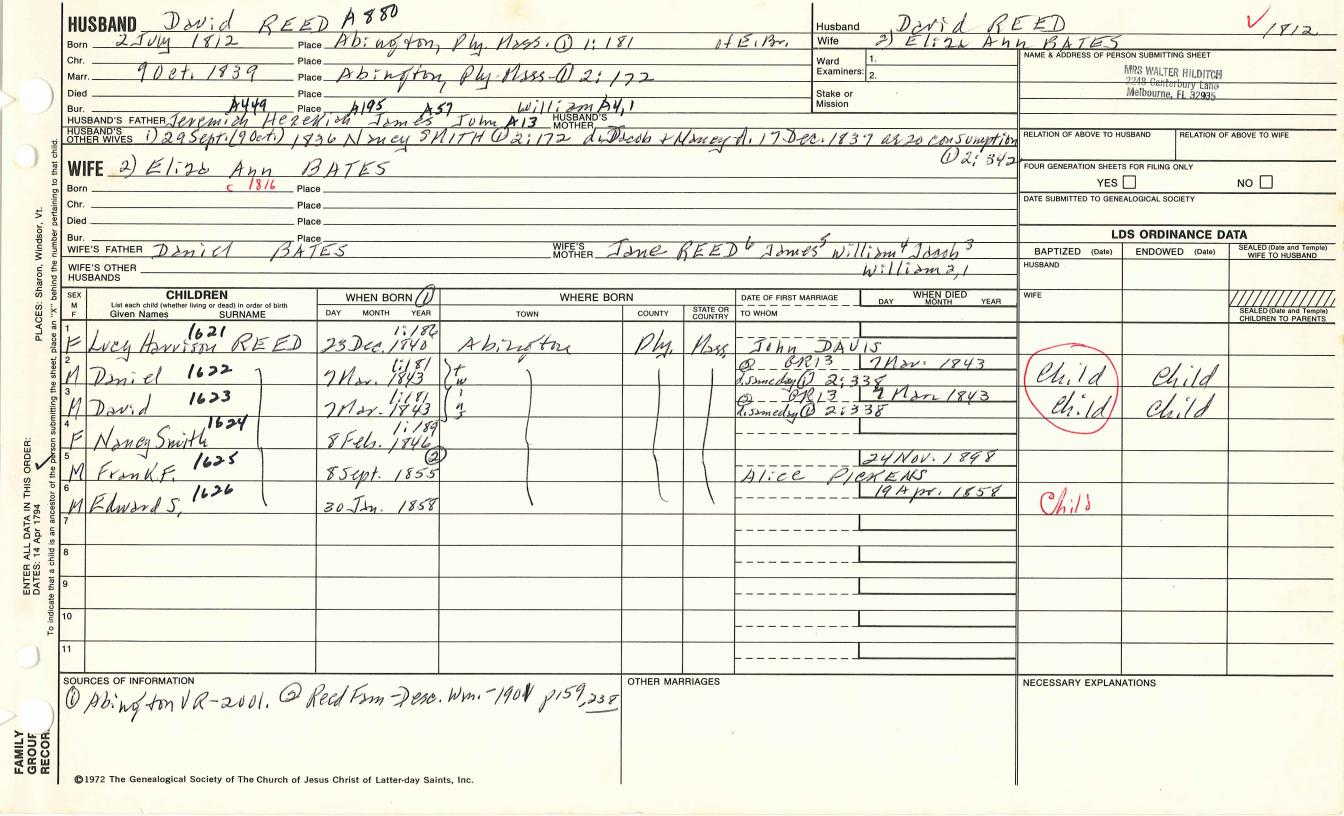 HUSBAND David REED A880
Born 2 July 1812 Place Abington, Ply. Mass. ① 1:181 of E. Br.
Chr. Place
Marr. 9 Oct. 1839 Place Abington, Ply. Mass. ① 2:172
Died Place
Bur. Place
A449 A195 A57 William A4,1
HUSBAND'S FATHER Jeremiah Hezekiah James John A13 HUSBAND'S MOTHER
HUSBAND'S OTHER WIVES 1) 29 Sept. (9 Oct.) 1836 Nancy SMITH ① 2:172 d. Jacob + Nancy d. 17 Dec. 1837 ae 20 consumption
① 2:342
Husband David REED 1812
Wife 2) Eliza Ann BATES
Ward Examiners: 1.
2.
Stake or Mission
NAME & ADDRESS OF PERSON SUBMITTING SHEET
MRS WALTER HILDITCH
2248 Canterbury Lane
Melbourne, FL 32935
RELATION OF ABOVE TO HUSBAND RELATION OF ABOVE TO WIFE
FOUR GENERATION SHEETS FOR FILING ONLY
YES NO
DATE SUBMITTED TO GENEALOGICAL SOCIETY
WIFE 2) Eliza Ann BATES
Born c 1816 Place
Chr. Place
Died Place
Bur. Place
WIFE'S FATHER Daniel BATES WIFE'S MOTHER Jane REED 6 James 5 William 4 Jacob 3
William 2,1
WIFE'S OTHER HUSBANDS
LDS ORDINANCE DATA
BAPTIZED (Date) ENDOWED (Date) SEALED (Date and Temple) WIFE TO HUSBAND
HUSBAND
WIFE
SEALED (Date and Temple) CHILDREN TO PARENTS
SEX M F CHILDREN List each child (whether living or dead) in order of birth Given Names SURNAME
WHEN BORN ① DAY MONTH YEAR
WHERE BORN TOWN COUNTY STATE OR COUNTRY
DATE OF FIRST MARRIAGE TO WHOM
WHEN DIED DAY MONTH YEAR
1 F Lucy Harrison REED 1621 1:186 23 Dec. 1840 Abington Ply. Mass. John DAVIS
2 M Daniel 1622 1:181 7 Mar. 1843 twins ② GR13 7 Mar. 1843 d. sameday ① 2:338 Child Child
3 M David 1623 1:181 7 Mar. 1843 ② GR13 7 Mar. 1843 d. sameday ① 2:338 Child Child
4 F Nancy Smith 1624 1:189 8 Feb. 1846
5 M Frank F. 1625 ② 8 Sept. 1855 24 Nov. 1898 Alice PICKENS
6 M Edward S, 1626 30 Jan. 1858 19 Apr. 1858 Child
7
8
9
10
11
SOURCES OF INFORMATION
① Abington VR-2001. ② Reed Fam-Desc. Wm.-1901 p159,238
OTHER MARRIAGES
NECESSARY EXPLANATIONS
©1972 The Genealogical Society of The Church of Jesus Christ of Latter-day Saints, Inc.
FAMILY GROUP RECOR
ENTER ALL DATA IN THIS ORDER:
DATES: 14 Apr 1794 PLACES: Sharon, Windsor, Vt.
To indicate that a child is an ancestor of the person submitting the sheet, place an "X" behind the number pertaining to that child.